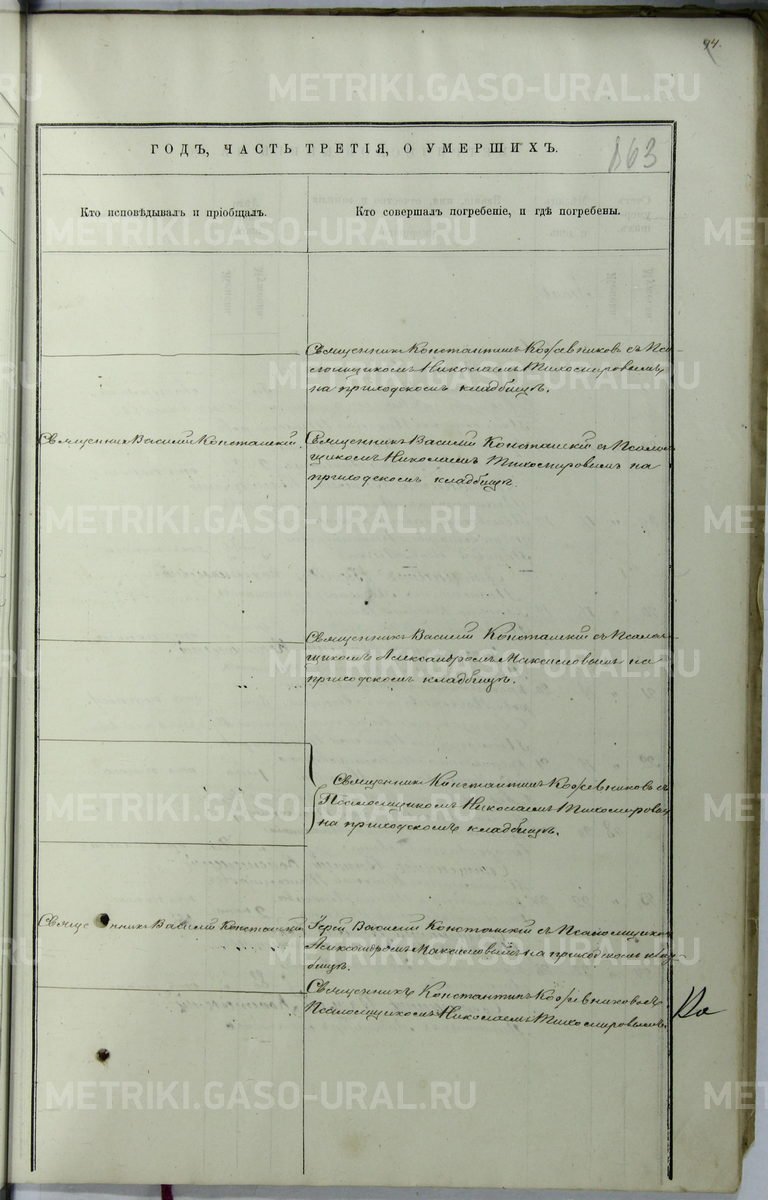 94.
ГОДЪ, ЧАСТЬ ТРЕТІЯ, О УМЕРШИХЪ.
863
Кто исповѣдывалъ и пріобщалъ.
Кто совершалъ погребеніе, и гдѣ погребены.
Священникъ Константинъ Кожевниковъ съ Пса-
ломщикомъ Николаемъ Тихомировымъ
на приходскомъ кладбищѣ.
Священникъ Василій
Священникъ Василій съ Псалом-
щикомъ Николаемъ Тихомировымъ на
приходскомъ кладбищѣ.
Священникъ Василій съ Псалом-
щикомъ Александромъ на
приходскомъ кладбищѣ.
Священникъ Константинъ Кожевниковъ съ
Псаломщикомъ Николаемъ Тихомировым
на приходскомъ кладбищѣ.
Священникъ Василій
Іерей Василій съ Псаломщиком
Александромъ на приходскомъ клад-
бищѣ.
Священникъ Константинъ Кожевниковъ съ
Псаломщикомъ Николаемъ Тихомировымъ
METRIKI.GASO-URAL.RU